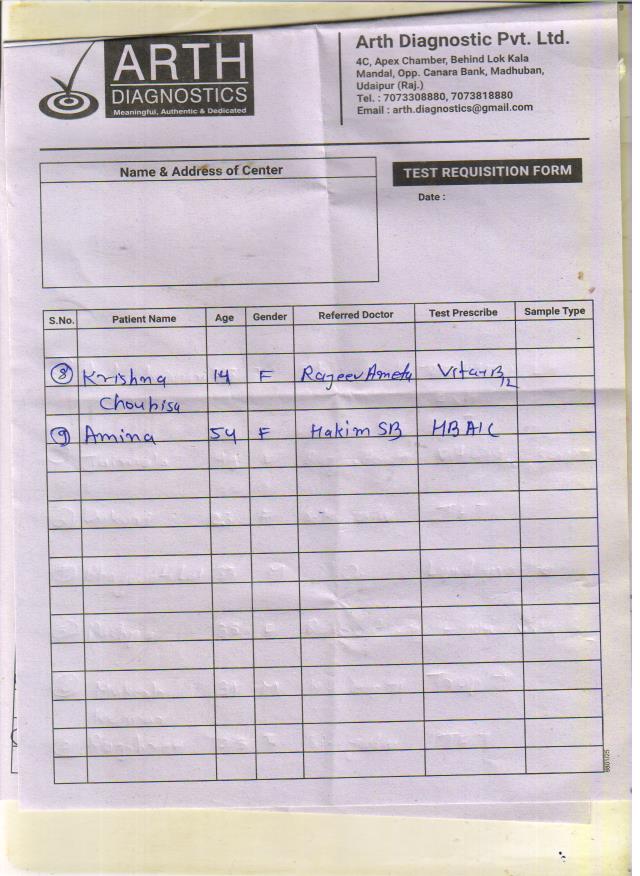 ARTH
DIAGNOSTICS
Meaningful, Authentic & Dedicated
Arth Diagnostic Pvt. Ltd.
4C, Apex Chamber, Behind Lok Kala
Mandal, Opp. Canara Bank, Madhuban,
Udaipur (Raj.)
Tel. : 7073308880, 7073818880
Email : arth.diagnostics@gmail.com
Name & Address of Center
TEST REQUISITION FORM
Date :
S.No. Patient Name Age Gender Referred Doctor Test Prescribe Sample Type
8 Krishna 14 F Rajeev Ameta Vita-B12
Choubisa
9 Amina 54 F Hakim SB HBA1C